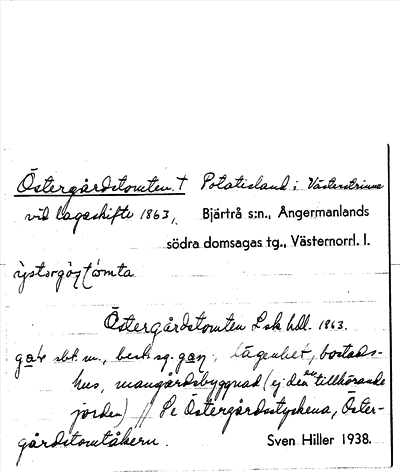 Östergårdstomten. † Potatisland i Västerstrinne
vid lagaskifte 1863,. Bjärtrå s:n., Ångermanlands
södra domsagas tg., Västernorrl. l.
Östergårdstomten Lsk hdl. 1863.
sbt. m., best. sg. lägenhet, bostads-
hus, mangårdsbyggnad (ej den tillhörande
jorden) // Se Östergårdsstyckena, Öster-
gårdstomtåkern. Sven Hiller 1938.